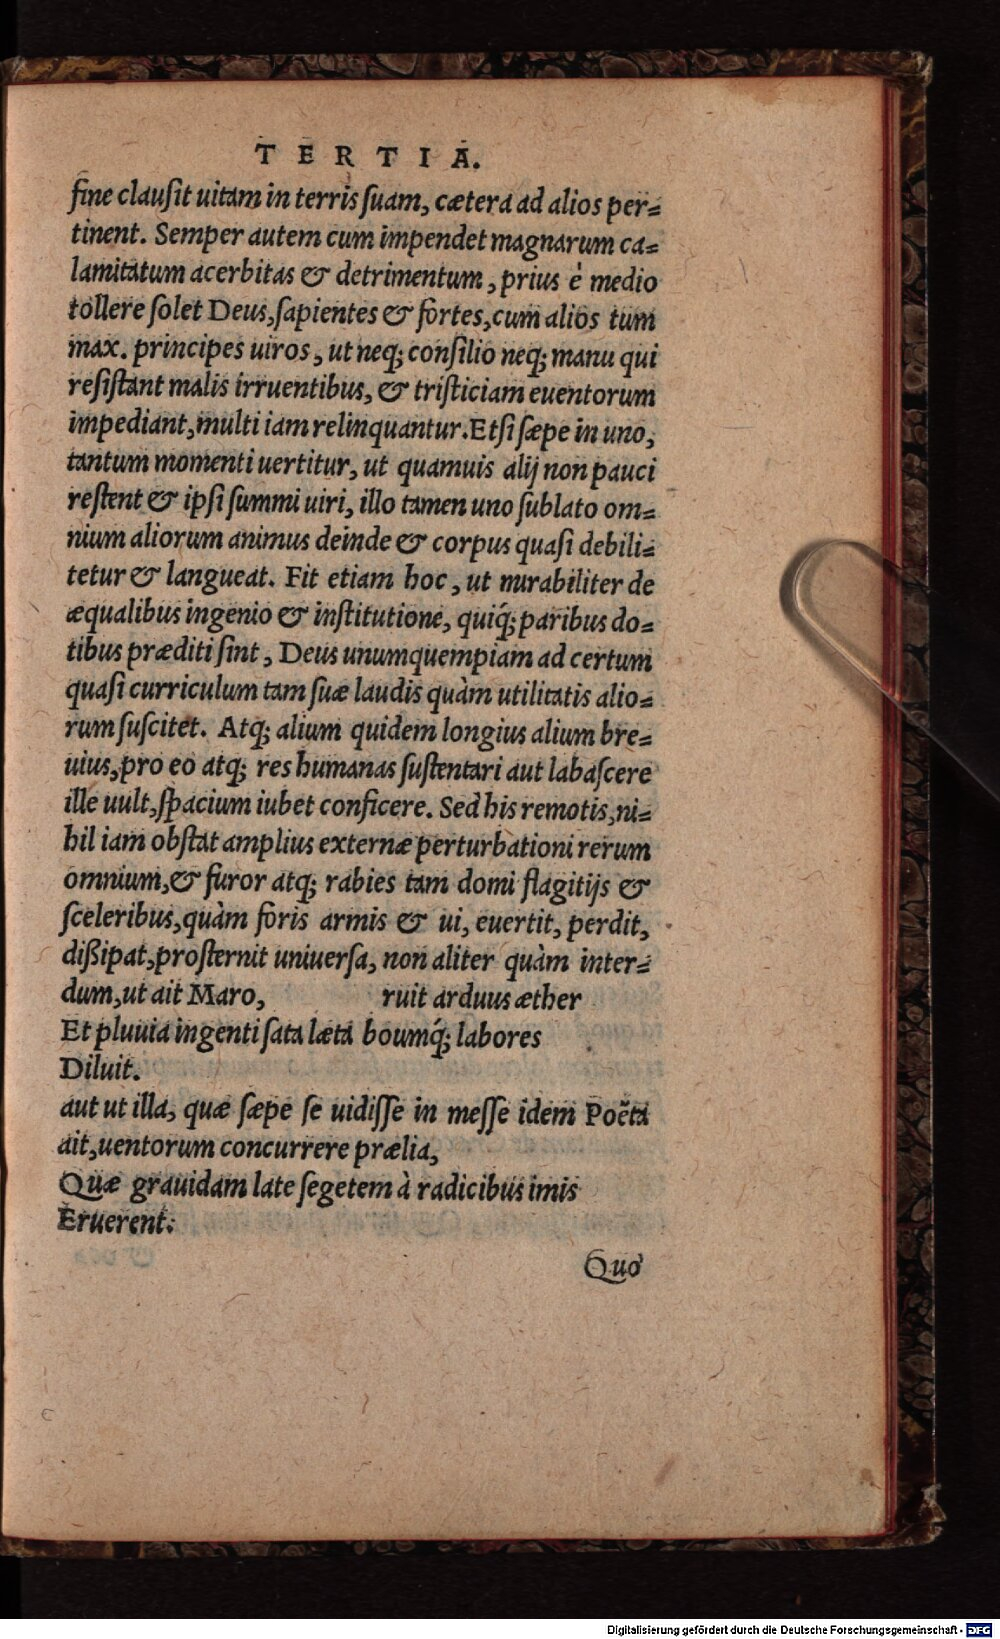 TERTIA.
fine clauſit uitam in terris ſuam, cætera ad alios per-
tinent. Semper autem cum impendet magnarum ca-
lamitatum acerbitas & detrimentum, prius è medio
tollere ſolet Deus, ſapientes & fortes, cum alios tum
max. principes uiros, ut neq; conſilio neq; manu qui
reſiſtant malis irruentibus, & triſticiam euentorum
impediant, multi iam relinquantur. Etſi ſæpe in uno,
tantum momenti uertitur, ut quamuis alij non pauci
reſtent & ipſi ſummi uiri, illo tamen uno ſublato om-
nium aliorum animus deinde & corpus quaſi debili-
tetur & langueat. Fit etiam hoc, ut mirabiliter de
æqualibus ingenio & inſtitutione, quiq́; paribus do-
tibus præditi ſint, Deus unumquempiam ad certum
quaſi curriculum tam ſuæ laudis quàm utilitatis alio-
rum ſuſcitet. Atq; alium quidem longius alium bre-
uius, pro eo atq; res humanas ſuſtentari aut labaſcere
ille uult, ſpacium iubet conficere. Sed his remotis, ni-
hil iam obſtat amplius externæ perturbationi rerum
omnium, & furor atq; rabies tam domi flagitijs &
ſceleribus, quàm foris armis & ui, euertit, perdit,
diſſipat, proſternit uniuerſa, non aliter quàm inter-
dum, ut ait Maro, ruit arduus æther
Et pluuia ingenti ſata læta boumq́; labores
Diluit.
aut ut illa, quæ ſæpe ſe uidiſſe in meſſe idem Poëta
ait, uentorum concurrere prælia,
Quæ grauidam late ſegetem à radicibus imis
Eruerent.
Quo
Digitalisierung gefördert durch die Deutsche Forschungsgemeinschaft - DFG